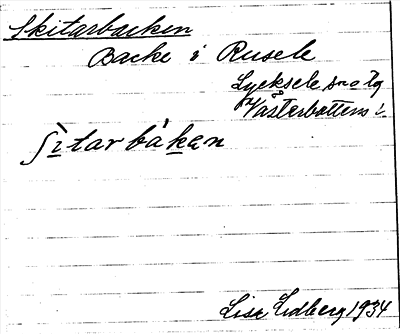 Skitarbacken
Backe i Rusele
Lycksele sn o tg
Västerbottens l.
ʃìtarbákan
Lisa Lidberg 1934